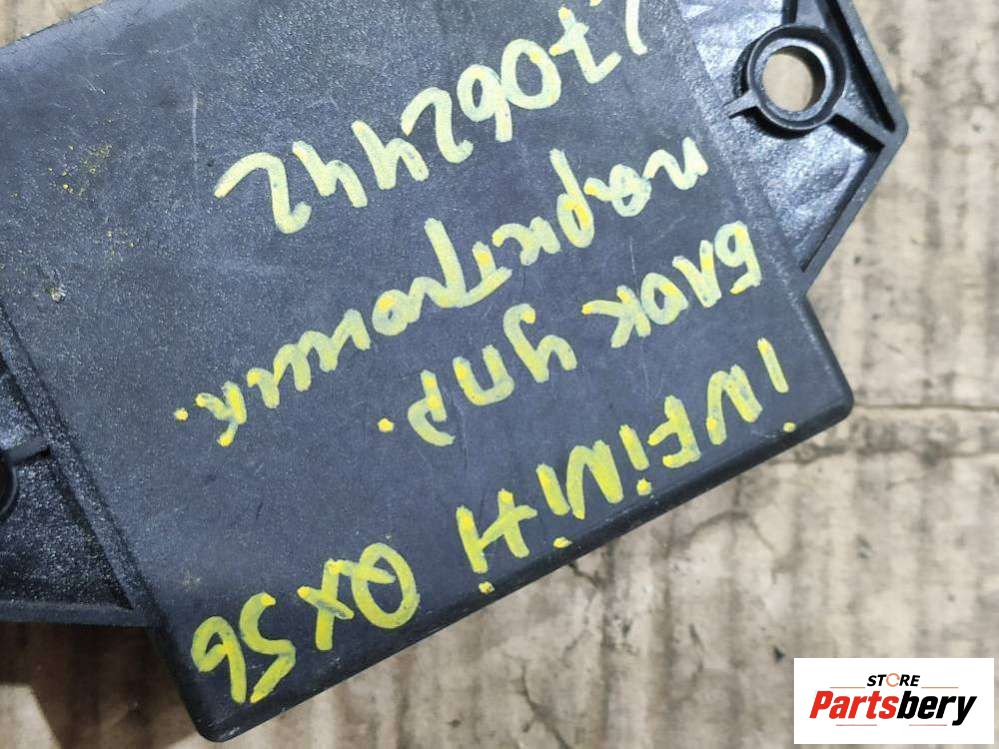 iNFiNiTi QX56
БЛОК УПР.
парктроник.
7062442
STORE
Partsbery